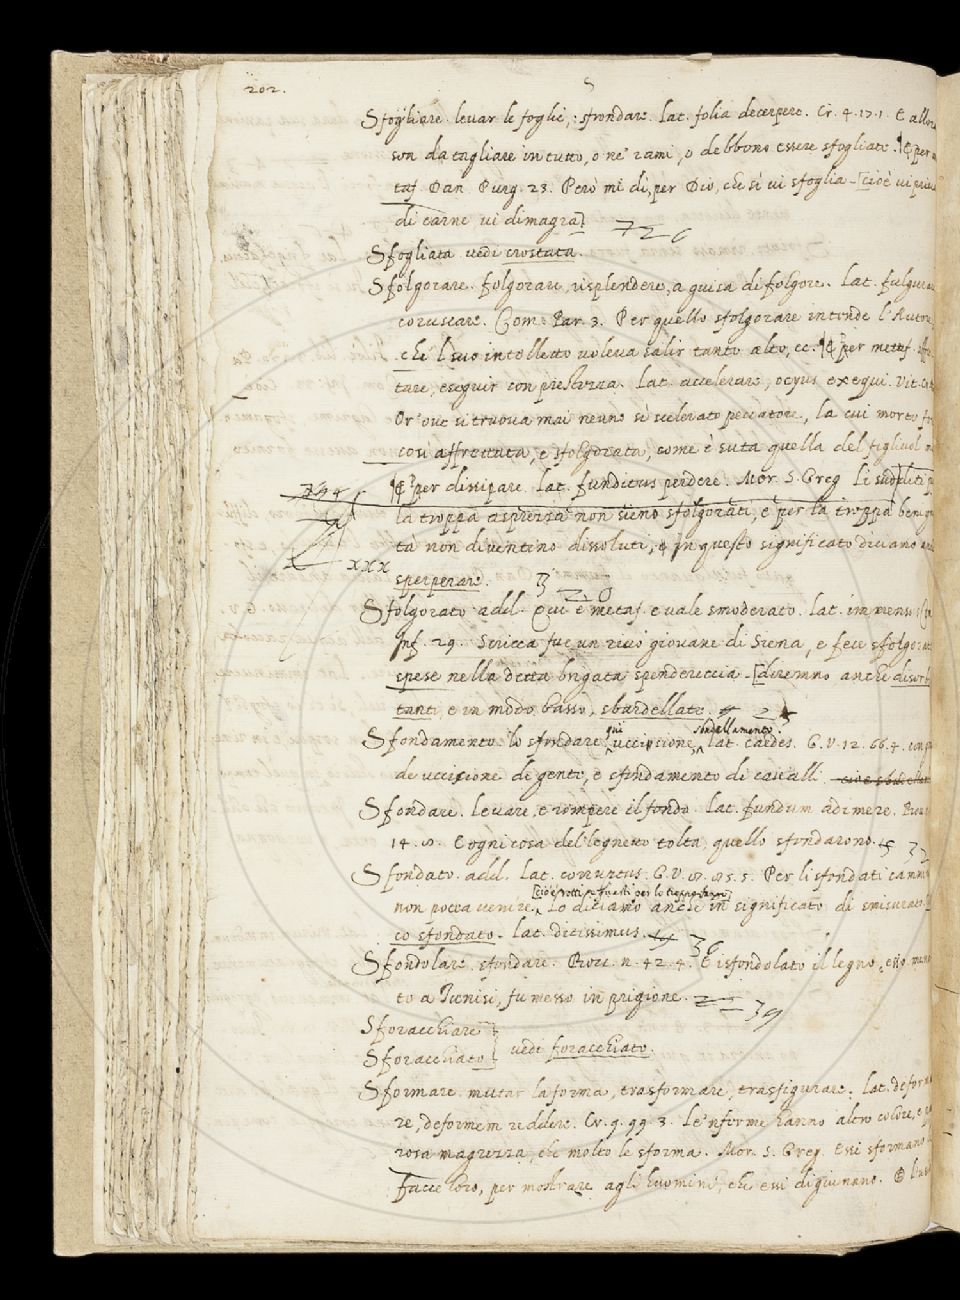 202.
S
Sfogliare. levar le foglie, sfrondare. Lat. folia decerpere. Cr. 4. 17. 1. E allora
son da tagliare in tutto, o ne' rami, o debbono essere sfogliate. ¶ E per
taf. Dan. Purg. 23. Però mi dì, per Dio, che sì vi sfoglia - [cioè vi priva
di carne vi dimagra]. 726
Sfogliata. vedi crostata.
Sfolgorare. folgorare, risplendere, a guisa di folgore. Lat. fulgurare
coruscare. Com. Par. 3. Per quello sfolgorare intende l'Autore,
che 'l suo intelletto voleva salir tanto alto, ec. ¶ E per metaf.
tare, eseguir con prestezza. Lat. accelerare, ocyus exequi. Vit.
Or ove si truova mai neuno sì scelerato peccatore, la cui morte
così affrettata, e sfolgorata, come è suta quella del figliuol
794 ¶ E per dissipare. Lat. funditus perdere. Mor. S. Greg. Li sudditi
la troppa asprezza non sieno sfolgorati, e per la troppa
tà non diventino dissoluti, e in questo significato diciamo
xxx sperperare. 3 20
Sfolgorato. add. Qui è metaf. e vale smoderato. Lat. immensus.
Inf. 29. Stricca fue un ricco giovane di Siena, e fece sfolgorate
spese nella detta brigata spendereccia - [diremmo anche
tanti, e in modo basso, sbardellate.
Sfondamento. lo sfondare, qui uccisione, Lat. caedes. G. V. 12. 66. 4.
de uccisione di gente, e sfondamento di cavalli.
Sfondare. Levare, e rompere il fondo. Lat. fundum adimere.
14. 8. E ogni cosa del legnetto tolta, quello sfondarono. 32
Sfondato. add. Lat. corruptus. G. V. 8. 85. 5. Per li sfondati
non potea venire. Lo diciamo anche in significato di smisurato.
co sfondato. Lat. ditissimus. 36
Sfondolare. sfondare. Bocc. n. 42. 4. E isfondolato il legno,
to a Tunisi, fu messo in prigione. 39
Sforacchiare
Sforacchiato } vedi foracchiato.
Sformare. mutar la forma, trasformare, trasfigurare. Lat. deforma
re, deformem reddere. Cr. 9. 99. 3. Le 'nferme hanno altro colore, e
rosa magrezza, che molto le sforma. Mor. S. Greg. Essi sformano
facce loro, per mostrare agli huomini, che essi digiunano.